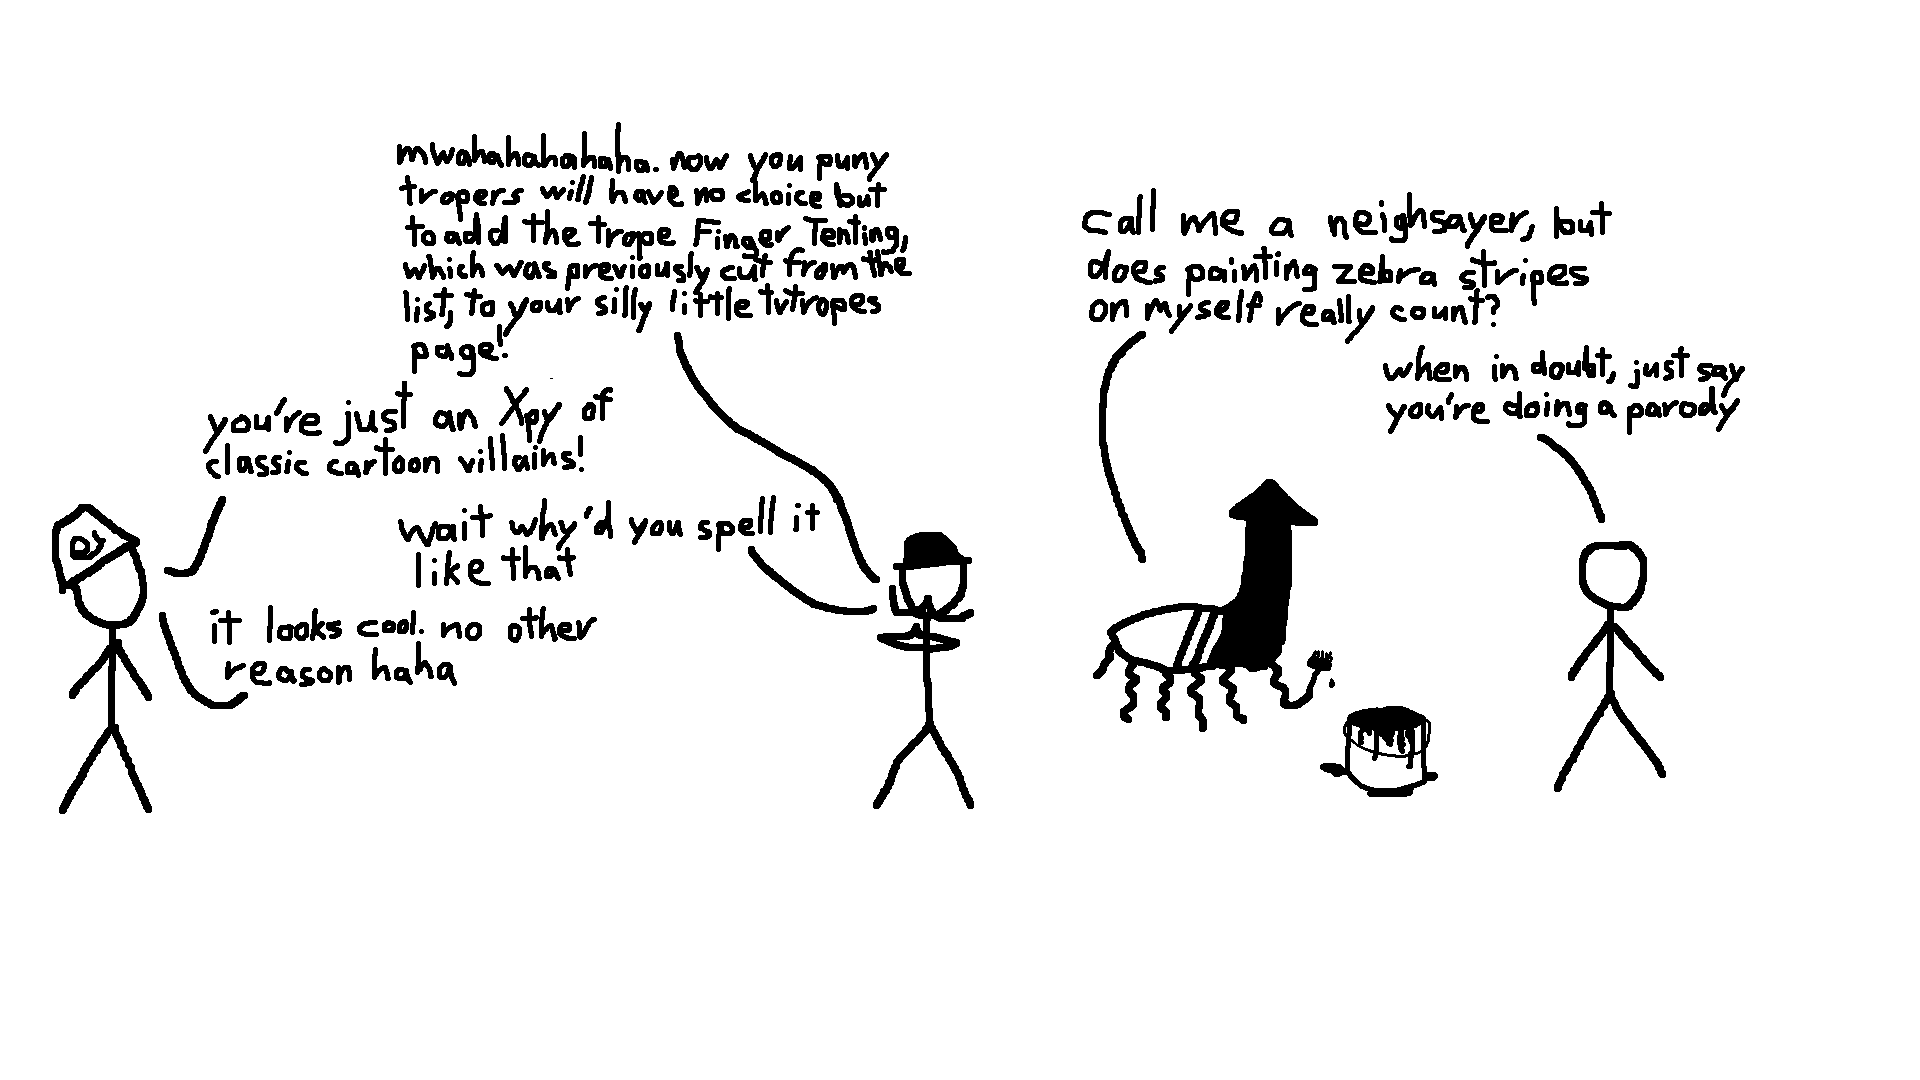 mwahahahahaha. now you puny
tropers will have no choice but
to add the trope Finger Tenting,
which was previously cut from the
list, to your silly little tvtropes
page!
you're just an Xpy of
classic cartoon villains!
wait why'd you spell it
like that
it looks cool. no other
reason haha
call me a neighsayer, but
does painting zebra stripes
on myself really count?
when in doubt, just say
you're doing a parody